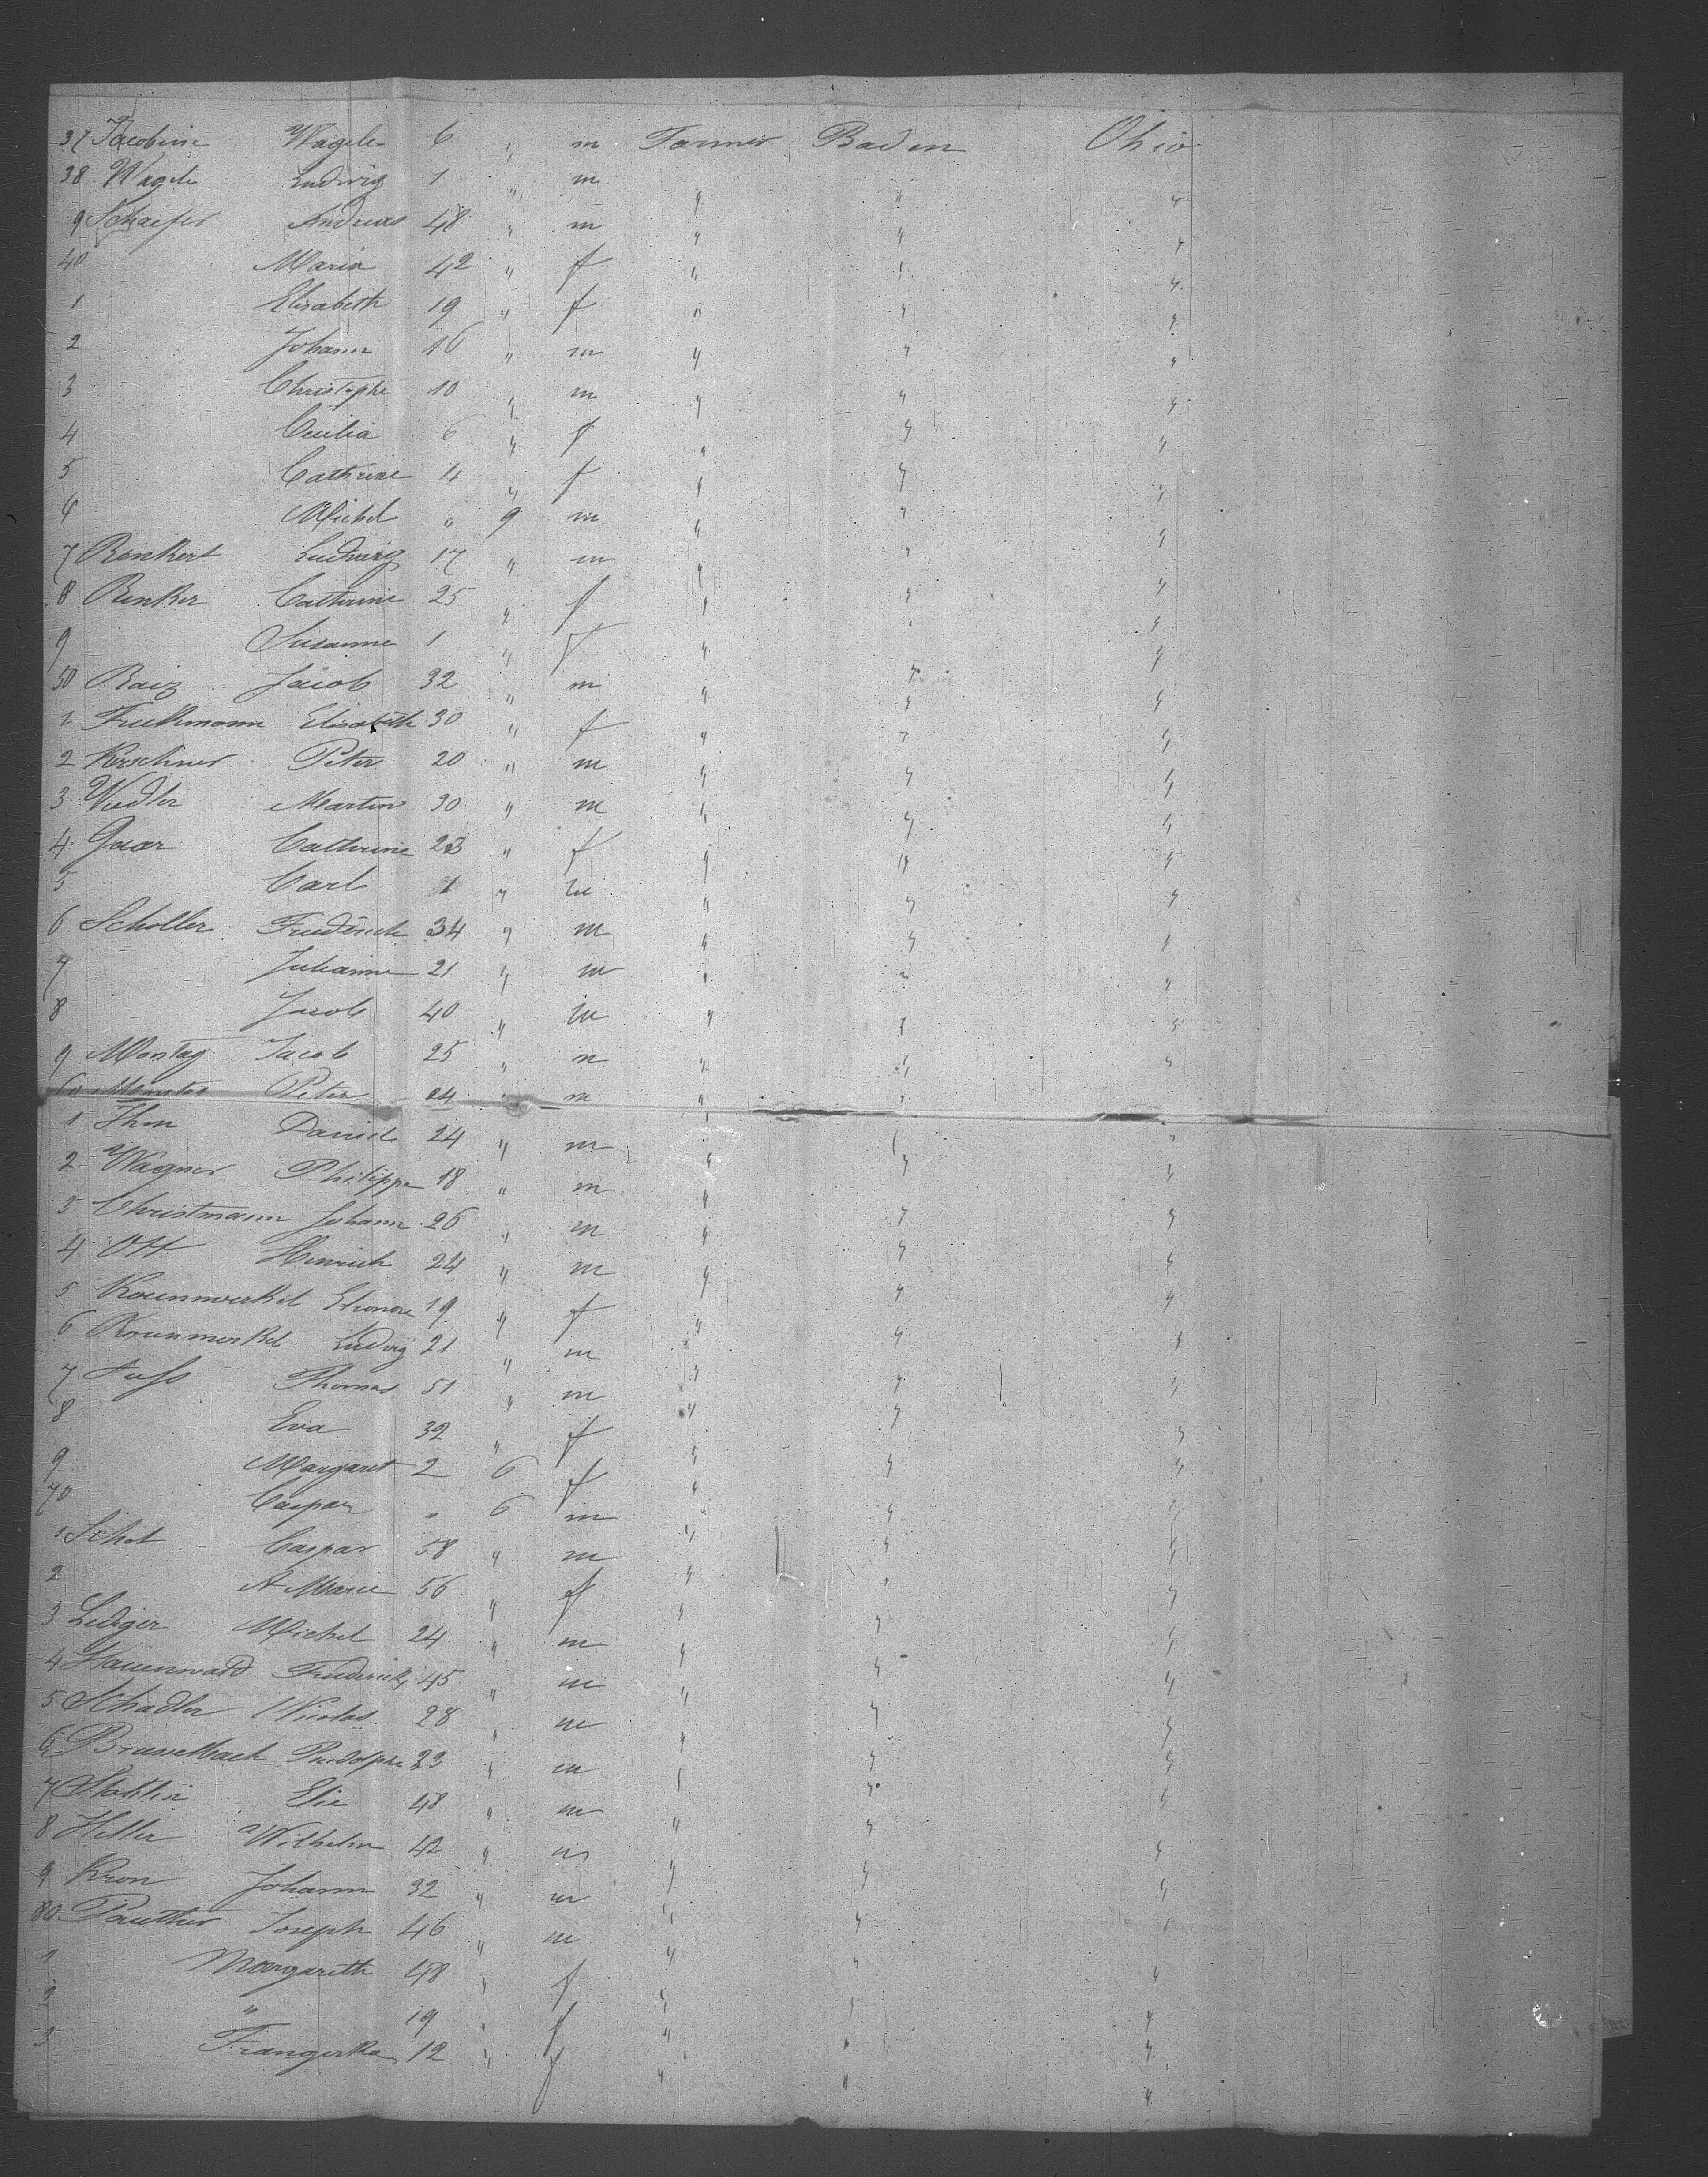 37 Jacobine Wagele 6 " m Farmer Baden Ohio
38 Wagele Ludwig 1 " m " " "
9 Schaefer Andreas 48 " m " " "
40 Maria 42 " f " " "
1 Elisabeth 19 " f " " "
2 Johann 16 " m " " "
3 Christophe 10 " m " " "
4 Cecilia 6 " f " " "
5 Cathrine 4 " f " " "
6 Michel " 9 m " " "
7 Renkert Ludwig 17 " m " " "
8 Renker Catherine 25 " f " " "
9 Susanne 1 " f " " "
50 Raiz Jacob 32 " m " " "
1 Elisabeth 30 " f " " "
2 Kerschner Peter 20 " m " " "
3 Wiedler Martin 30 " m " " "
4 Catherine 23 " f " " "
5 Carl 1 " m " " "
6 Scholler Friederich 34 " m " " "
7 Julianne 21 " m " " "
8 Jacob 40 " m " " "
9 Montag Jacob 25 " m " " "
60 Peter 24 " m " " "
1 Ihm Daniel 24 " m " " "
2 Wagner Philippe 18 " m " " "
3 Christmann Johann 26 " m " " "
4 Ott Heinrich 24 " m " " "
5 Eleonore 19 " f " " "
6 Ludwig 21 " m " " "
7 Fuss Thomas 51 " m " " "
8 Eva 32 " f " " "
9 Margaret 2 6 f " " "
70 Caspar " 6 m " " "
1 Schot Caspar 58 " m " " "
2 A Marie 56 " f " " "
3 Lediger Michel 24 " m " " "
4 Hauenwald Friederich 45 " m " " "
5 Schadler Nicolas 28 " m " " "
6 Rudolphe 23 " m " " "
7 Elie 48 " m " " "
8 Heller Wilhelm 42 " m " " "
9 Kron Johann 32 " m " " "
80 Panther Joseph 46 " m " " "
1 Margareth 48 " f " " "
2 " 19 " f " " "
3 12 " f " " "